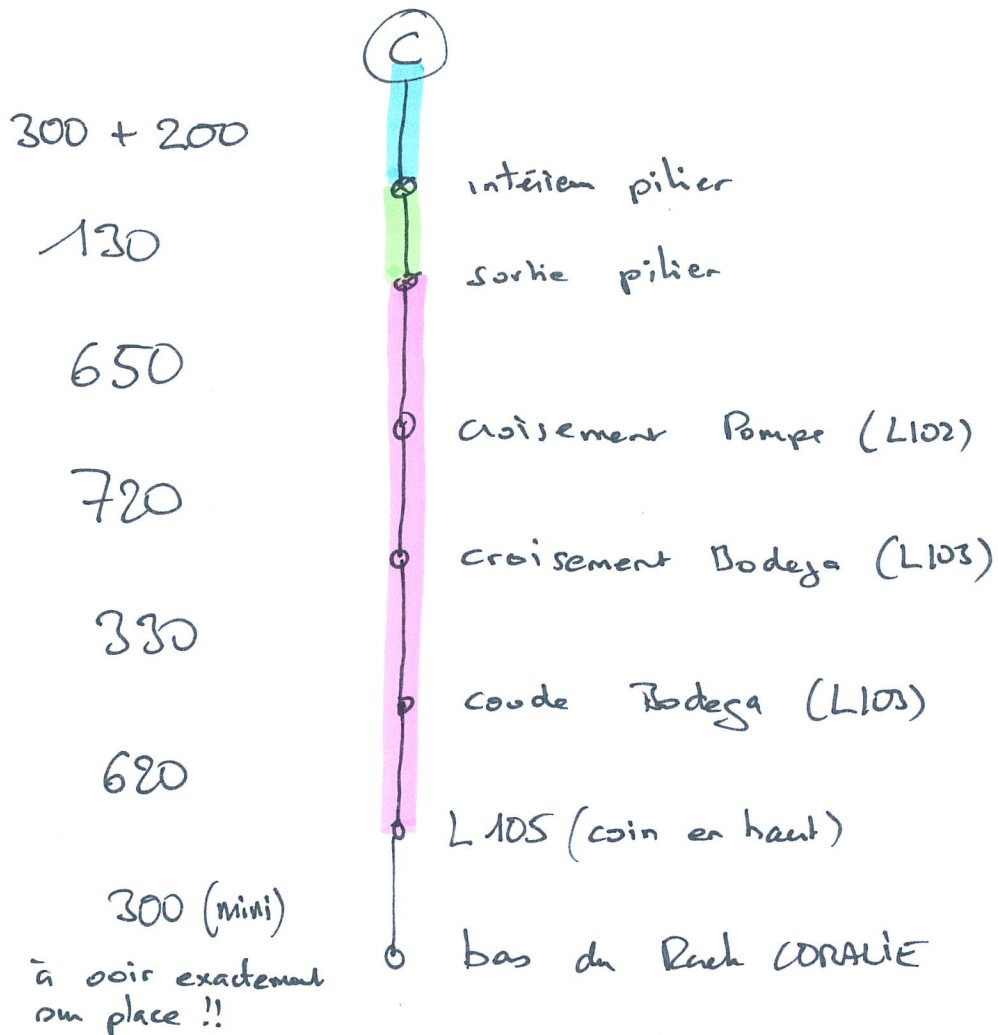 C
300 + 200
intérieur pilier
130
sortie pilier
650
croisement Pompe (L102)
720
croisement Bodega (L103)
330
coude Bodega (L103)
620
L105 (coin en haut)
300 (mini)
bas du Rack CORALIE
à voir exactement
sur place !!